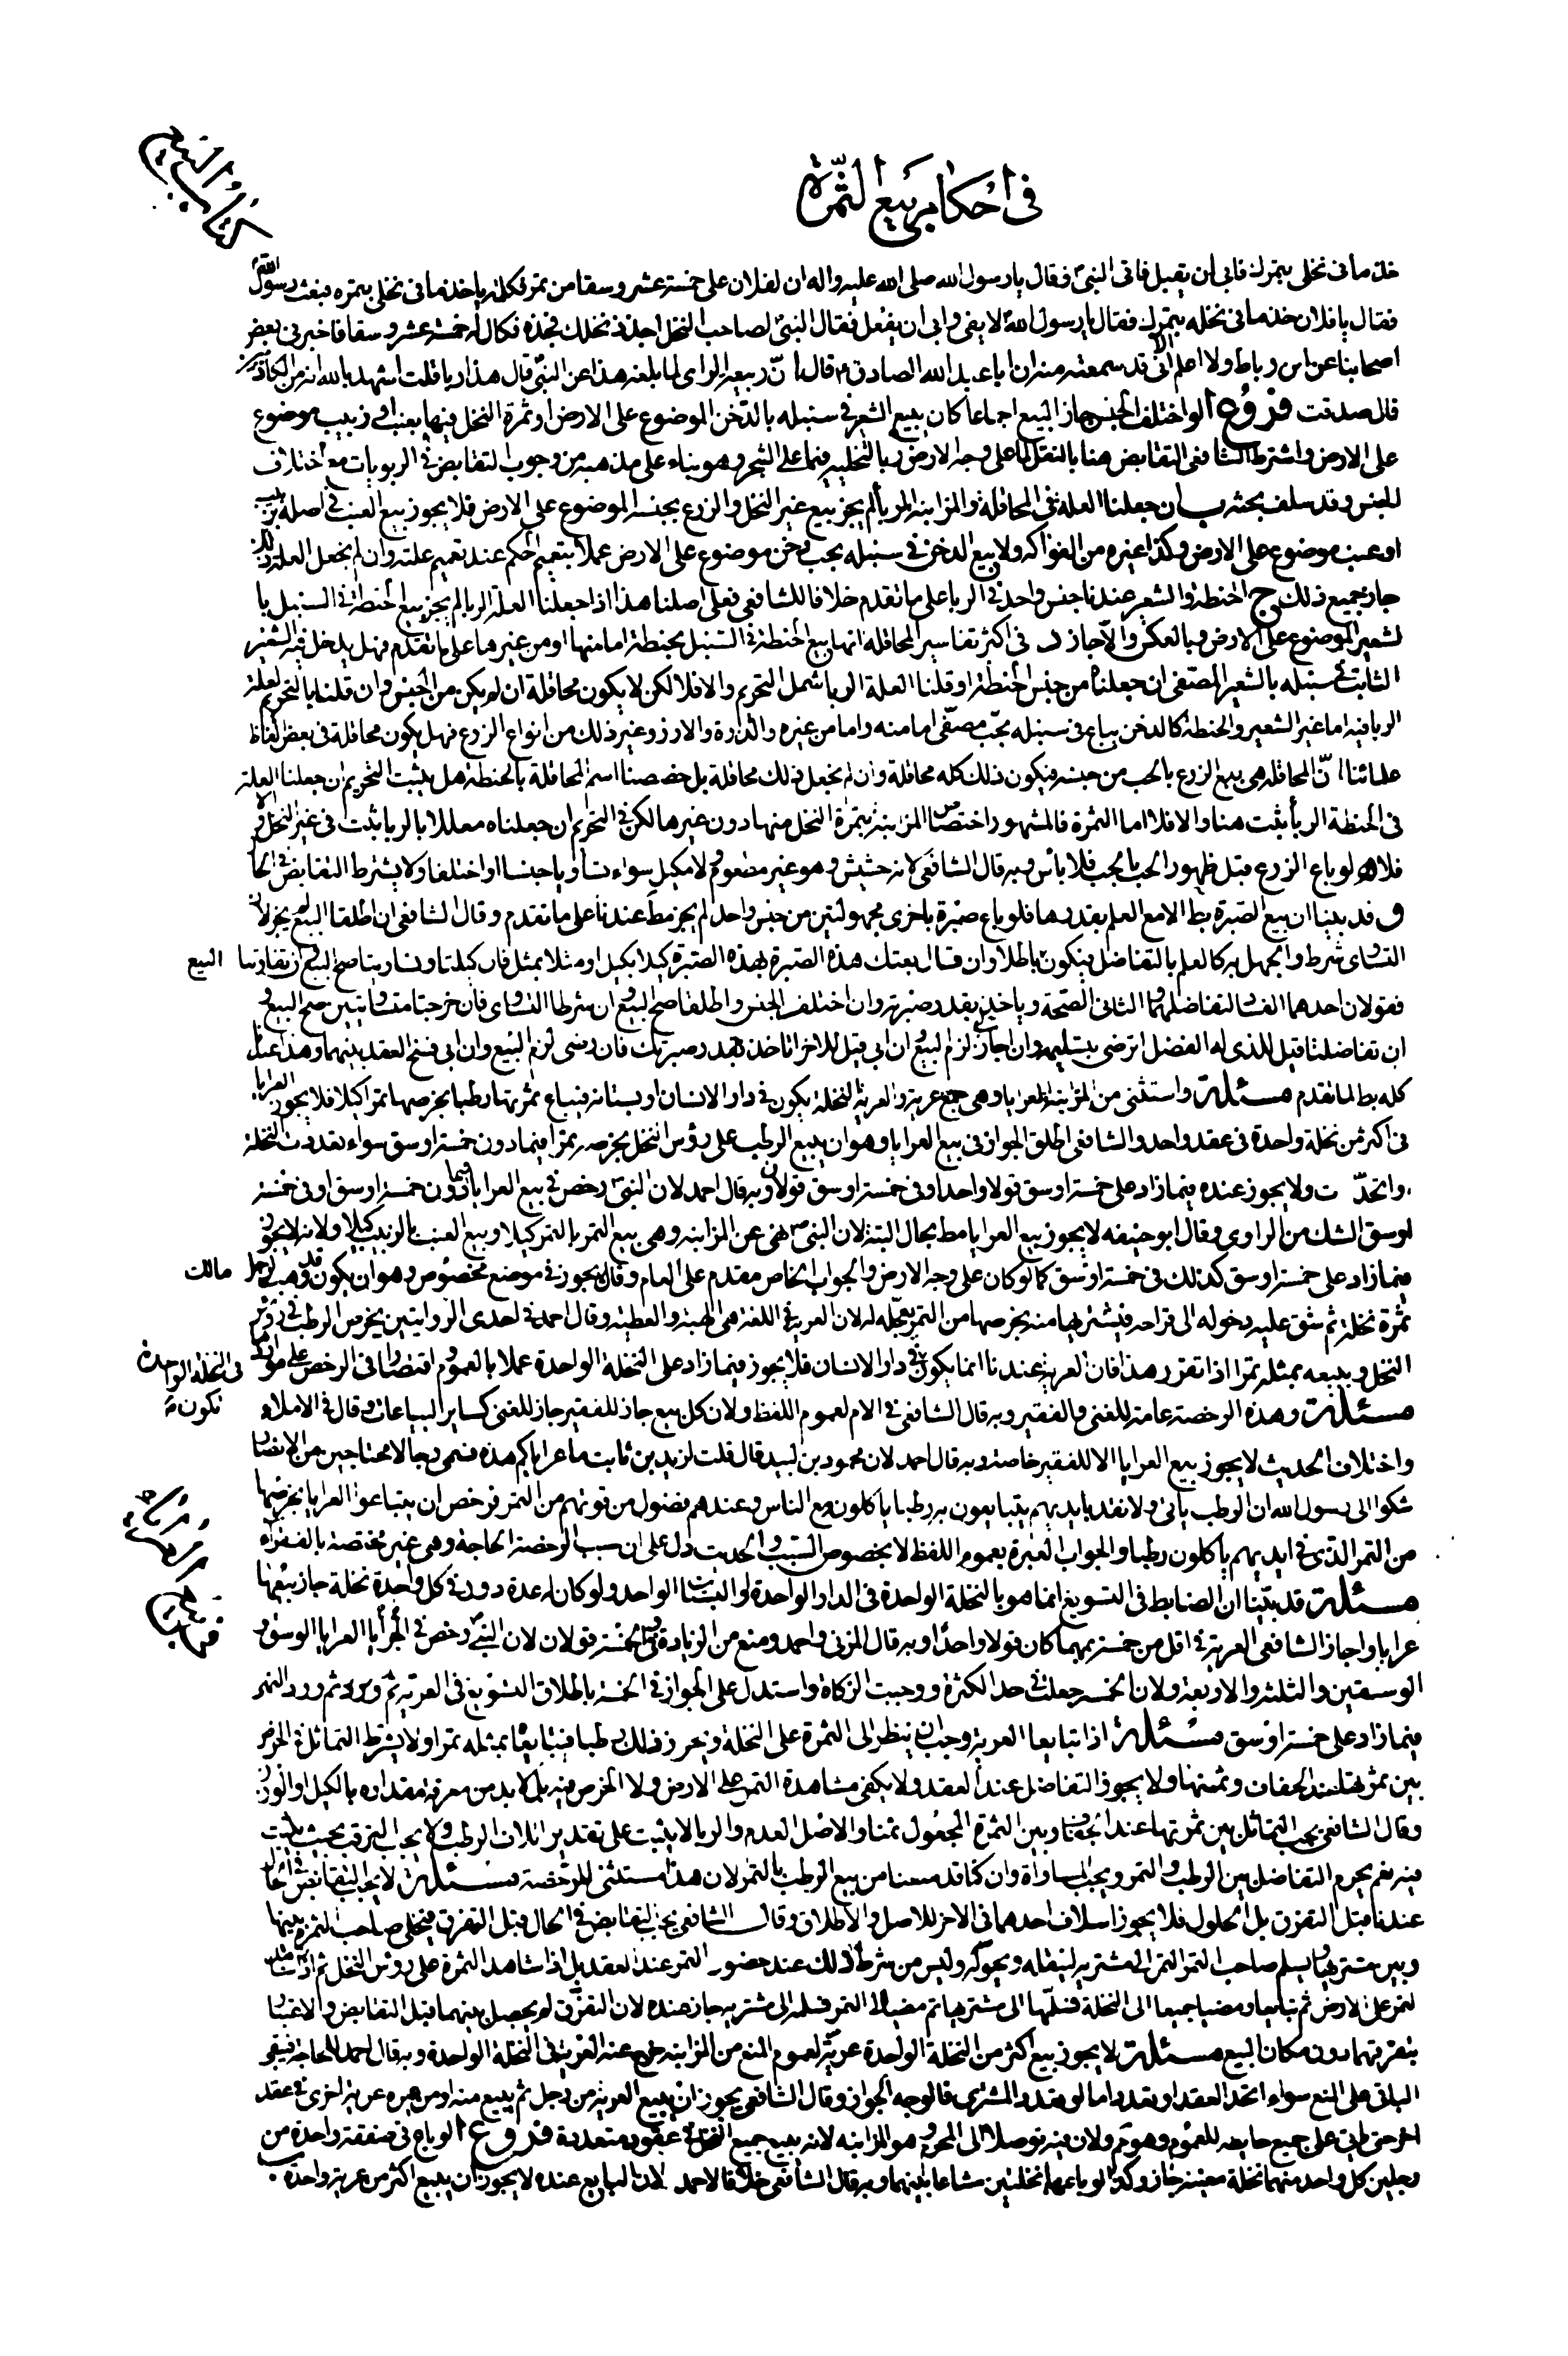 في احكام بيع الثمرة
كتاب البيع
خذ ما في نخلي بتمرك فابى ان يقبل فاتى النبي فقال يا رسول الله صلى الله عليه واله ان لفلان على خمسة عشر وسقا من تمر فكلمه ياخذ ما في نخلي بتمره فبعث رسول الله
فقال يا فلان خذ ما في نخله بتمرك فقال يا رسول الله لا يفي وابى ان يفعل فقال النبي لصاحب النخل اجذذ نخلك فجذه فكال له خمسة عشر وسقا فاخبرني بعض
اصحابنا عن ابن رباط ولا اعلم الا اني قد سمعته منه ان ابا عبد الله الصادق قال ان ربيعة الراى لما بلغه هذا عن النبي قال هذا ربا قلت اشهد بالله انه من الكاذبين
قال صدقت فروع ا لو اختلف الجنس جاز البيع اجماعا كان يبيع الشعير في سنبله بالدخن الموضوع على الارض او ثمرة النخل فيها بعنب او زبيب موضوع
على الارض واشترط الشافعي التقابض هنا بالنقل لما على وجه الارض وبالتخلية فيما على الشجر وهو بناء على مذهبه من وجوب التقابض في الربويات مع اختلاف
الجنس وقد سلف بحثه ب ان جعلنا العلة في المحاقلة والمزابنة الربا لم يجز بيع غير النخل والزرع بجنسه الموضوع على الارض فلا يجوز بيع العنب في اصله بزبيب
او عنب موضوع على الارض وكذا غيره من الفواكه ولا بيع الدخن في سنبله بحب دخن موضوع على الارض عملا بتعميم الحكم عند تعميم علته وان لم نجعل العلة ذلك
جاز جميع ذلك ج الحنطة والشعير عندنا جنس واحد في الربا على ما تقدم خلافا للشافعي فعلى اصلنا هذا اذا جعلنا العلة الربا لم يجز بيع الحنطة في السنبل با
لشعير الموضوع على الارض وبالعكس والا جاز د في اكثر تفاسير المحاقلة انها بيع الحنطة في السنبل بحنطة اما منها او من غيرها على ما تقدم فهل يدخل فيه الشعير
الثابت في سنبله بالشعير المصفى ان جعلناه من جنس الحنطة او قلنا العلة الربا شمل التحريم والا فلا لكن لا يكون محاقلة ان لم يكن من الجنس وان قلنا بالتحريم لعلة
الربا فيه اما غير الشعير والحنطة كالدخن يباع في سنبله بحب مصفى اما منه واما من غيره والذرة والارز وغير ذلك من انواع الزرع فهل يكون محاقلة في بعض الفاظ
علمائنا ان المحاقلة هي بيع الزرع بالحب من جنسه فيكون ذلك كله محاقلة وان لم نجعل ذلك محاقلة بل خصصنا اسم المحاقلة بالحنطة هل يثبت التحريم ان جعلنا العلة
في الحنطة الربا ثبت هنا والا فلا اما الثمرة فالمشهور اختصاص المزابنة بثمرة النخل منها دون غيرها لكن في التحريم ان جعلناه معللا بالربا يثبت في غير النخل والا
فلا ه لو باع الزرع قبل ظهور الحب بالحب فلا بأس وبه قال الشافعي لانه حشيش وهو غير مطعوم ولا مكيل سواء تساويا جنسا او اختلفا ولا يشترط التقابض في الحال
و قد بينا ان بيع الصبرة بط الا مع العلم بقدرها فلو باع صبرة باخرى مجهولتين من جنس واحد لم يجز مط عندنا على ما تقدم وقال الشافعي ان اطلقا البيع لم يجز لان
التساوى شرط والجهل به كالعلم بالتفاضل فيكون باطلا وان قال بعتك هذه الصبرة بهذه الصبرة كيلا بكيل او مثلا بمثل فان كيلتا وتساويتا صح البيع وان تفاوتتا البيع
فقولان احدهما الفساد لتفاضلهما والثاني الصحة وياخذ بقدر صبرته وان اختلف الجنس واطلقا صح البيع وان شرطا التساوى فان خرجتا متساويتين صح البيع و
ان تفاضلتا قيل للذي له الفضل اترضى بتسليمه وان اجاز لزم البيع وان ابى قيل للاخر اتاخذ بقدر صبرتك فان رضى لزم البيع وان ابى فسخ العقد بينهما وهذا عندنا
كله بط لما تقدم مسئلة واستثنى من المزابنة العرايا وهي جمع عرية والعرية النخلة يكون في دار الانسان او بستانه فيباع ثمرتها رطبا بخرصها تمرا كيلا فلا يجوز العرايا
في اكثر من نخلة واحدة في عقد واحد والشافعي اطلق الجواز في بيع العرايا وهو ان يبيع الرطب على رؤس النخل بخرصه تمرا فيما دون خمسة اوسق سواء تعددت النخلة
واتحدت ولا يجوز عنده فيما زاد على خمسة اوسق قولا واحدا وفي خمسة اوسق قولان وبه قال احمد لان النبي رخص في بيع العرايا فيما دون خمسة اوسق او في خمسة
اوسق الشك من الراوي وقال ابو حنيفة لا يجوز بيع العرايا مط بحال البتة لان النبي نهى عن المزابنة وهي بيع التمر بالتمر كيلا وبيع العنب بالزبيب كيلا ولانه لا يجوز
فيما زاد على خمسة اوسق كذلك في خمسة اوسق كما لو كان على وجه الارض والجواب الخاص مقدم على العام وقال يجوز في موضع مخصوص وهو ان يكون قد وهب لرجل مالك
ثمرة نخلة ثم شق عليه دخوله الى قراحه فيشتريها منه بخرصها من التمر يعجله له لان العرية في اللغة هي الهبة والعطية وقال احمد في احدى الروايتين يخرص الرطب في رؤس
النخل ويبيعه بمثله تمرا اذا تقرر هذا فان العرية عندنا انما يكون في دار الانسان فلا يجوز فيما زاد على النخلة الواحدة عملا بالعموم اقتصارا في الرخص على موردها في النخلة الواحدة تكون
مسئلة وهذه الرخصة عامة للغني والفقير وبه قال الشافعي في الام لعموم اللفظ ولان كل بيع جاز للفقير جاز للغني كساير البياعات وقال في الاملاء
واختلاف الحديث لا يجوز بيع العرايا الا للفقير خاصة وبه قال احمد لان محمود بن لبيد قال قلت لزيد بن ثابت ما عراياكم هذه فسمى رجالا محتاجين من الانصار
شكوا الى رسول الله ان الرطب ياتي ولا نقد بايديهم يتبايعون به رطبا ياكلون مع الناس وعندهم فضول من قوتهم من التمر فرخص ان يبتاعوا العرايا بخرصها
من التمر الذي في ايديهم ياكلون رطبا والجواب العبرة بعموم اللفظ لا بخصوص السبب والحديث دل على ان سبب الرخصة الحاجة وهي غير مختصة بالفقراء
مسئلة قد بينا ان الضابط في التسويغ انما هو بالنخلة الواحدة في الدار الواحدة او البستان الواحد ولو كان له عدة دور في كل واحدة نخلة جاز بيعها
عرايا واجاز الشافعي العرية في اقل من خمسة مهما كان قولا واحدا وبه قال المزني واحمد ومنع من الزيادة وفي الخمسة قولان لان النبي رخص في العرايا الوسق و
الوسقين والثلثة والاربعة ولان الخمسة جعلت في حد الكثرة ووجبت الزكاة واستدل على الجواز في الخمسة باطلاق التسويغ في العرية ثم ورود النهى
فيما زاد على خمسة اوسق مسئلة اذا تبايعا العرية وجب ان ينظر الى الثمرة على النخلة ويحرز ذلك رطبا فيتبايعا بمثله تمرا ولا يشترط التماثل في الخرص
بين ثمرتها عند الجفاف وثمنها ولا يجوز التفاضل عند العقد ولا يكفى مشاهدة التمر على الارض ولا الخرص فيه بل لا بد من معرفة مقداره بالكيل او الوزن
وقال الشافعي يجب التماثل بين ثمرتها عند الجفاف وبين الثمرة المجعول ثمنا والاصل العدم والربا لا يثبت على تقدير اتلاف الرطب ولا يجب الترقب بحيث يثبت
فيه نعم يحرم التفاضل بين الرطب والتمر ويجب المساواة وان كنا قد منعنا من بيع الرطب بالتمر لان هذا مستثنى للرخصة مسئلة لا يجب التقابض في الحال
عندنا قبل التفرق بل الحلول فلا يجوز اسلاف احدهما في الاخر للاصل والاطلاق وقال الشافعي يجب التقابض في الحال قبل التفرق فيخلى صاحب الثمرة بينها
وبين مشتريها ويسلم صاحب التمر التمر الى مشتريه لينقله ويحوله وليس من شرط ذلك عند حضور التمر عند العقد بل اذا شاهد الثمرة على رؤس النخل ثم شاهد
التمر على الارض ثم تبايعا ومضيا جميعا الى النخلة فسلمها الى مشتريها ثم مضيا الى التمر فسلمه الى مشتريه جاز عنده لان التفرق لم يحصل بينهما قبل التقابض والاعتبار
بتفرقهما دون مكان البيع مسئلة لا يجوز بيع اكثر من النخلة الواحدة عرية لعموم المنع من المزابنة خرج عنه العرية في النخلة الواحدة وبه قال احمد للحاجة فيبقى
الباقي على المنع سواء اتحد العقد او تعدد اما لو تعدد المشتري فالوجه الجواز وقال الشافعي يجوز ان يبيع العرية من رجل ثم يبيع منه او من غيره عرية اخرى في عقد
اخر حتى ياتي على جميع حايطه للعموم وهو مم ولان فيه توصلا الى المحرم وهو المزابنة لانه يبيع جميع الثمرة في عقود متعددة فروع ا لو باع في صفقة واحدة من
رجلين كل واحد منهما نخلة معينة جاز وكذا لو باعهما نخلتين مشاعا بينهما وبه قال الشافعي خلافا لاحمد لان البايع عنده لا يجوز ان يبيع اكثر من عرية واحدة